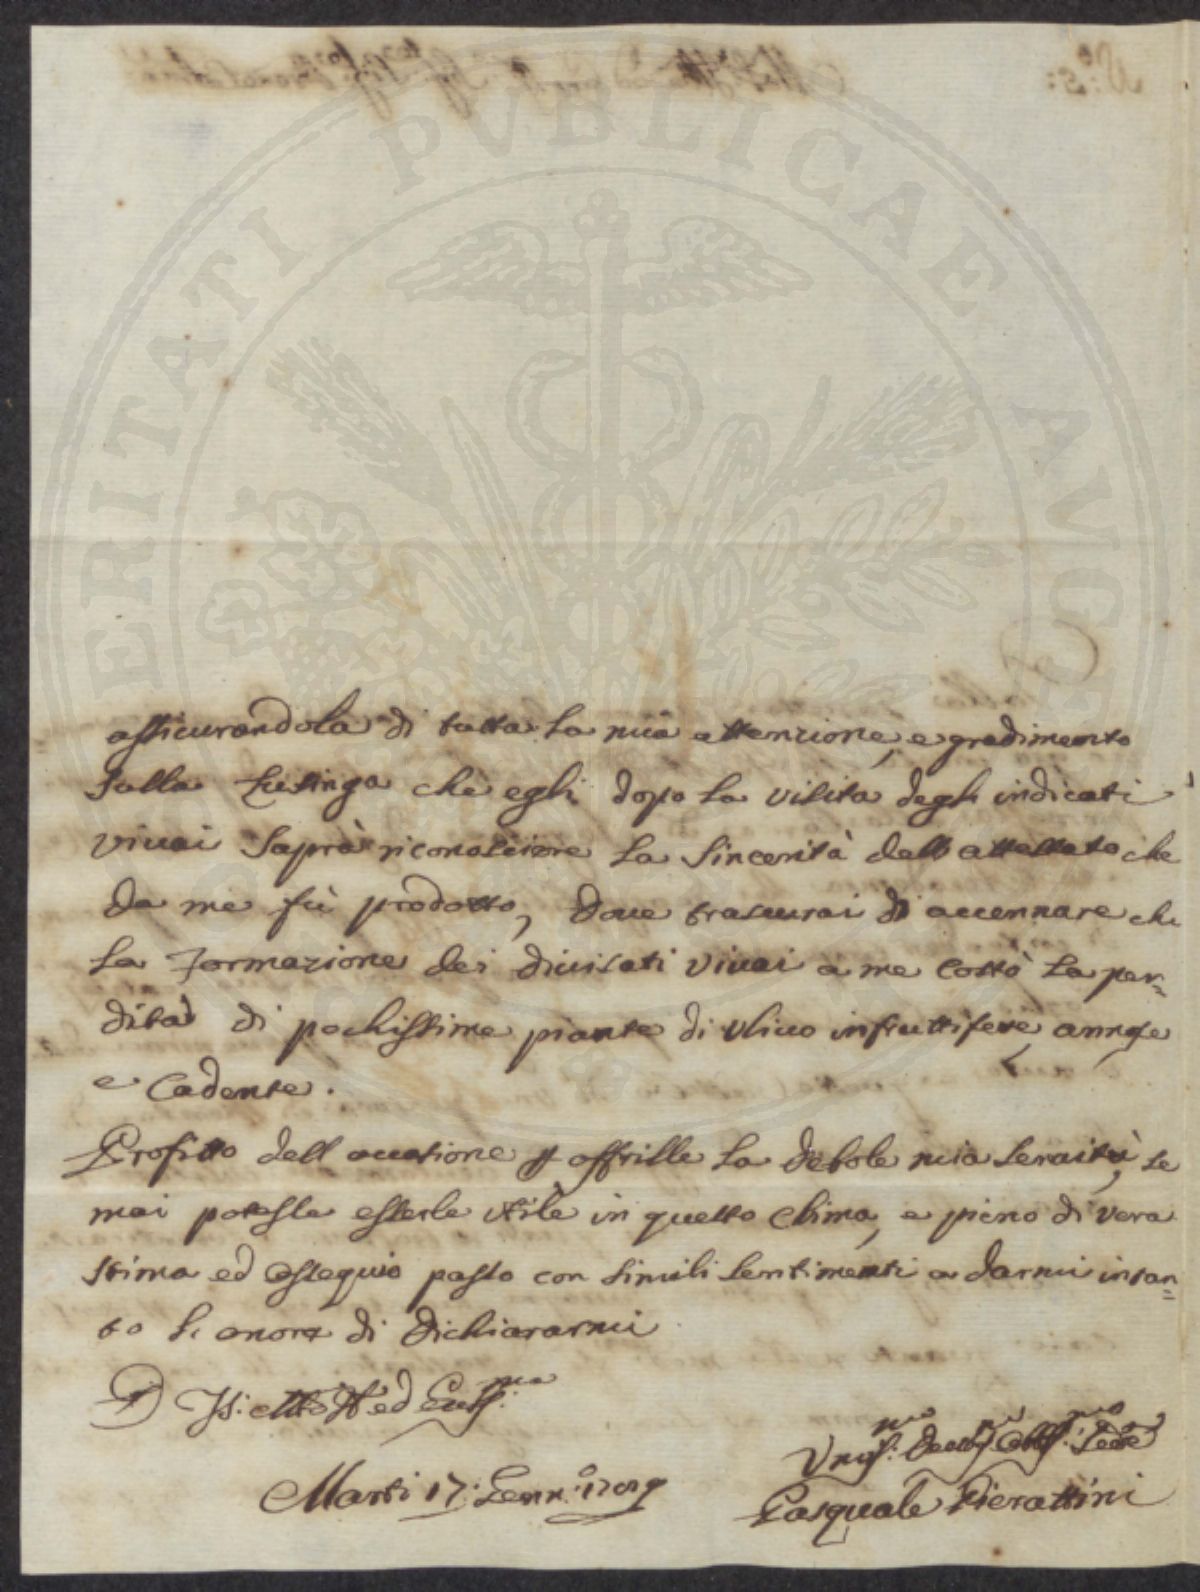 PROSPERITATI PUBLICAE AUGENDAE
assicurandola di tutta la mia attenzione, e gradimento
sulla lusinga che egli dopo la visita degli indicati
vivai saprà riconoscere la sincerità dell attestato che
da me fù prodotto, dove trascurai di accennare che
la formazione dei divisati vivai a me costò la per=
dita di pochissime piante di ulivo infruttifere, annose
e cadente.
Profitto dell occasione p offrille la debole mia servitù, se
mai potesse esserle utile in questo clima, e pieno di vera
stima ed ossequio passo con simili sentimenti a darmi intan=
to l'onore di dichiararmi
D
Marti 17: Genn:o
Pasquale Pierattini